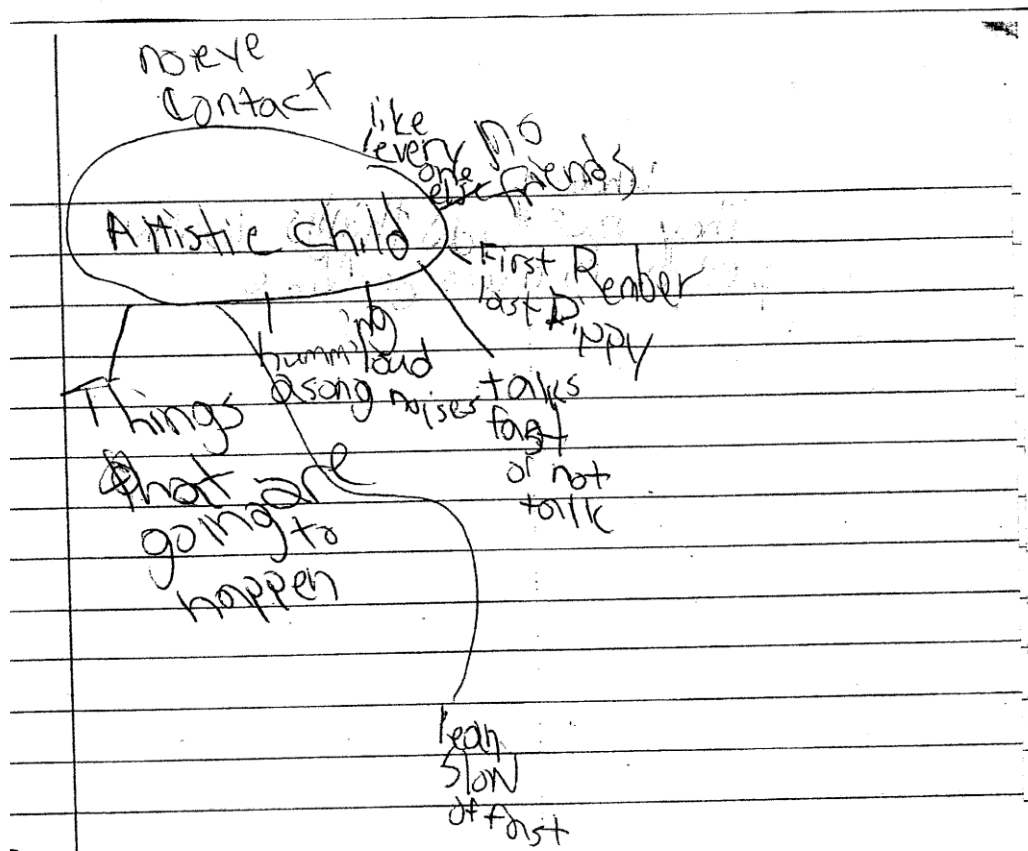 no eye
contact
like
every
one
else
no
friends
Artistic child
First Rember
last Dippy
humming
a song
loud
noises
talks
fast
or not
talk
Things
that are
going to
happen
lean
slow
or fast